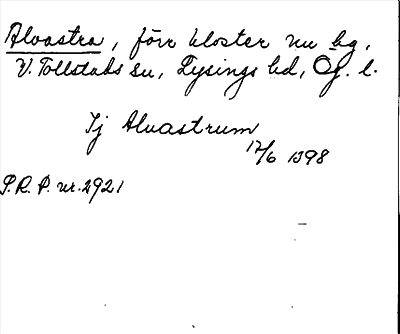 Alvastra, förr kloster nu kg,
V. Tollstads sn, Lysings hd, Ög. l.
Ij Aluastrum
17/6 1398
S.R.P. nr. 2921